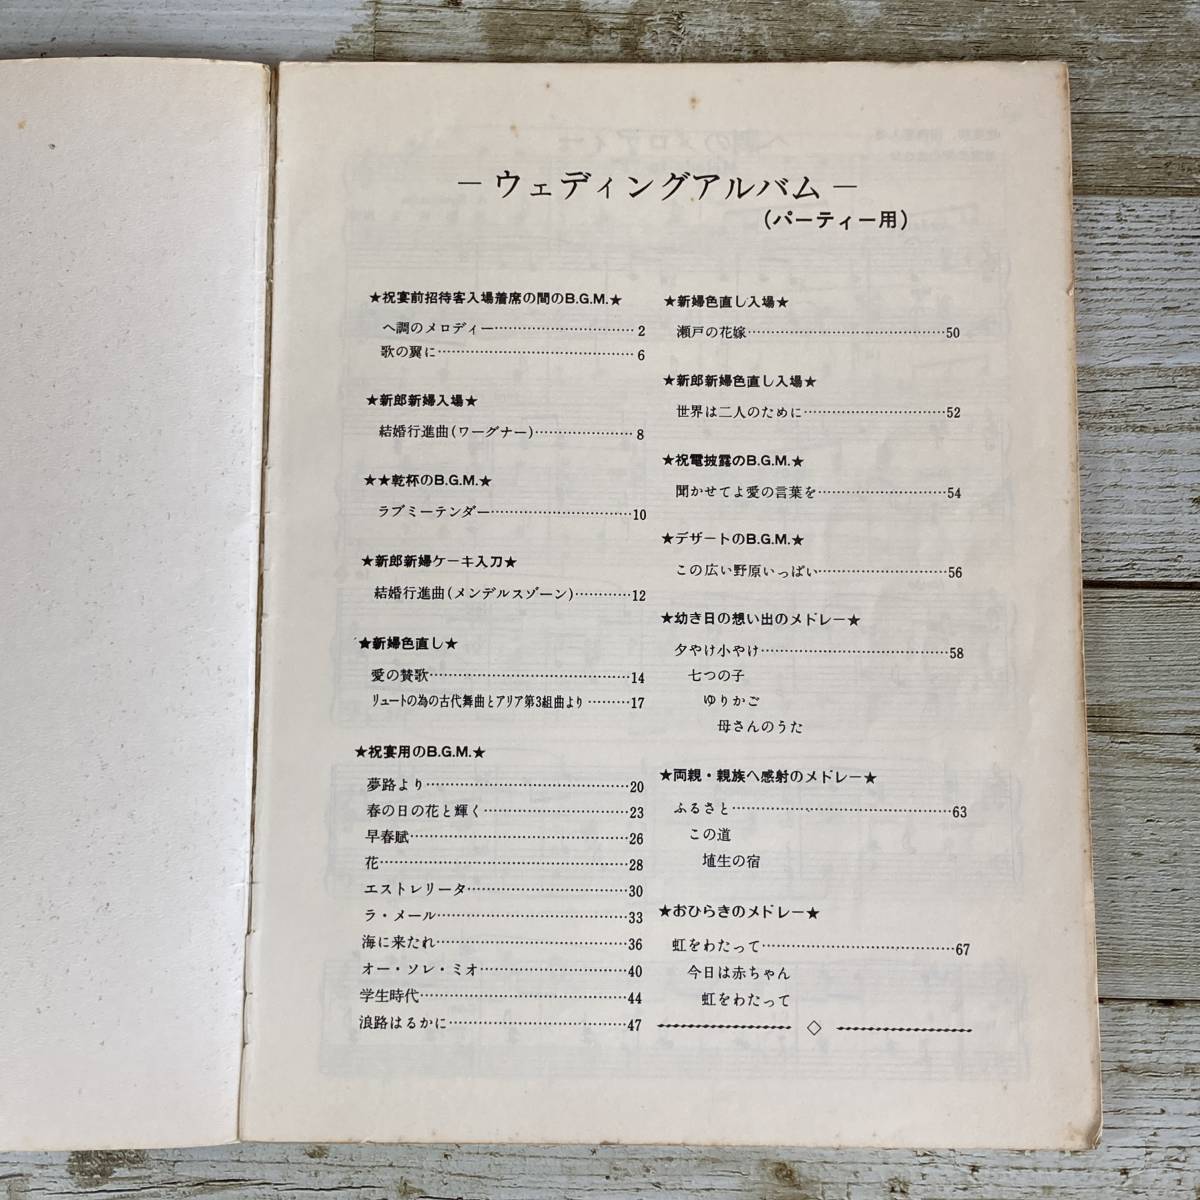 －ウェディングアルバム－
（パーティー用）
★祝宴前招待客入場着席の間のB.G.M.★
ヘ調のメロディー…………………………2
歌の翼に……………………………………6
★新郎新婦入場★
結婚行進曲(ワーグナー)…………………8
★★乾杯のB.G.M.★
ラブミーテンダー…………………………10
★新郎新婦ケーキ入刀★
結婚行進曲(メンデルスゾーン)…………12
★新婦色直し★
愛の賛歌……………………………………14
リュートの為の古代舞曲とアリア第3組曲より………17
★祝宴用のB.G.M.★
夢路より……………………………………20
春の日の花と輝く…………………………23
早春賦………………………………………26
花……………………………………………28
エストレリータ……………………………30
ラ・メール…………………………………33
海に来たれ…………………………………36
オー・ソレ・ミオ…………………………40
学生時代……………………………………44
浪路はるかに………………………………47
★新婦色直し入場★
瀬戸の花嫁…………………………………50
★新郎新婦色直し入場★
世界は二人のために………………………52
★祝電披露のB.G.M.★
聞かせてよ愛の言葉を……………………54
★デザートのB.G.M.★
この広い野原いっぱい……………………56
★幼き日の想い出のメドレー★
夕やけ小やけ………………………………58
七つの子
ゆりかご
母さんのうた
★両親・親族へ感射のメドレー★
ふるさと……………………………………63
この道
埴生の宿
★おひらきのメドレー★
虹をわたって………………………………67
今日は赤ちゃん
虹をわたって